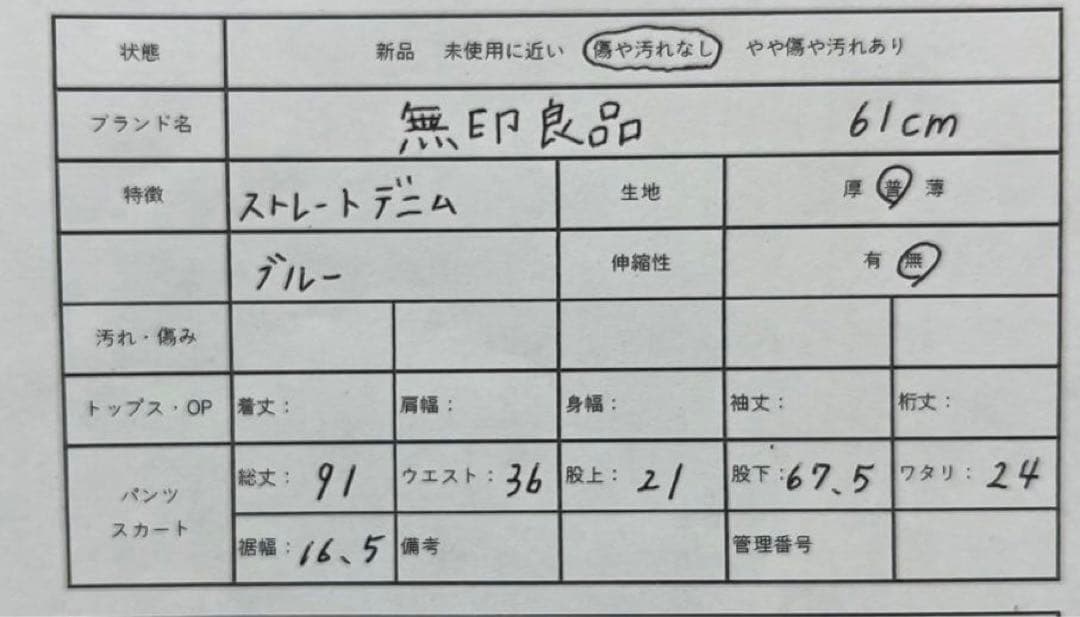 状態 新品 未使用に近い 傷や汚れなし やや傷や汚れあり
ブランド名 無印良品 61cm
特徴 ストレートデニム 生地 厚 普 薄
ブルー 伸縮性 有 無
汚れ・傷み
トップス・OP 着丈: 肩幅: 身幅: 袖丈: 裄丈:
パンツ スカート 総丈: 91 ウエスト: 36 股上: 21 股下: 67、5 ワタリ: 24
裾幅: 16、5 備考 管理番号